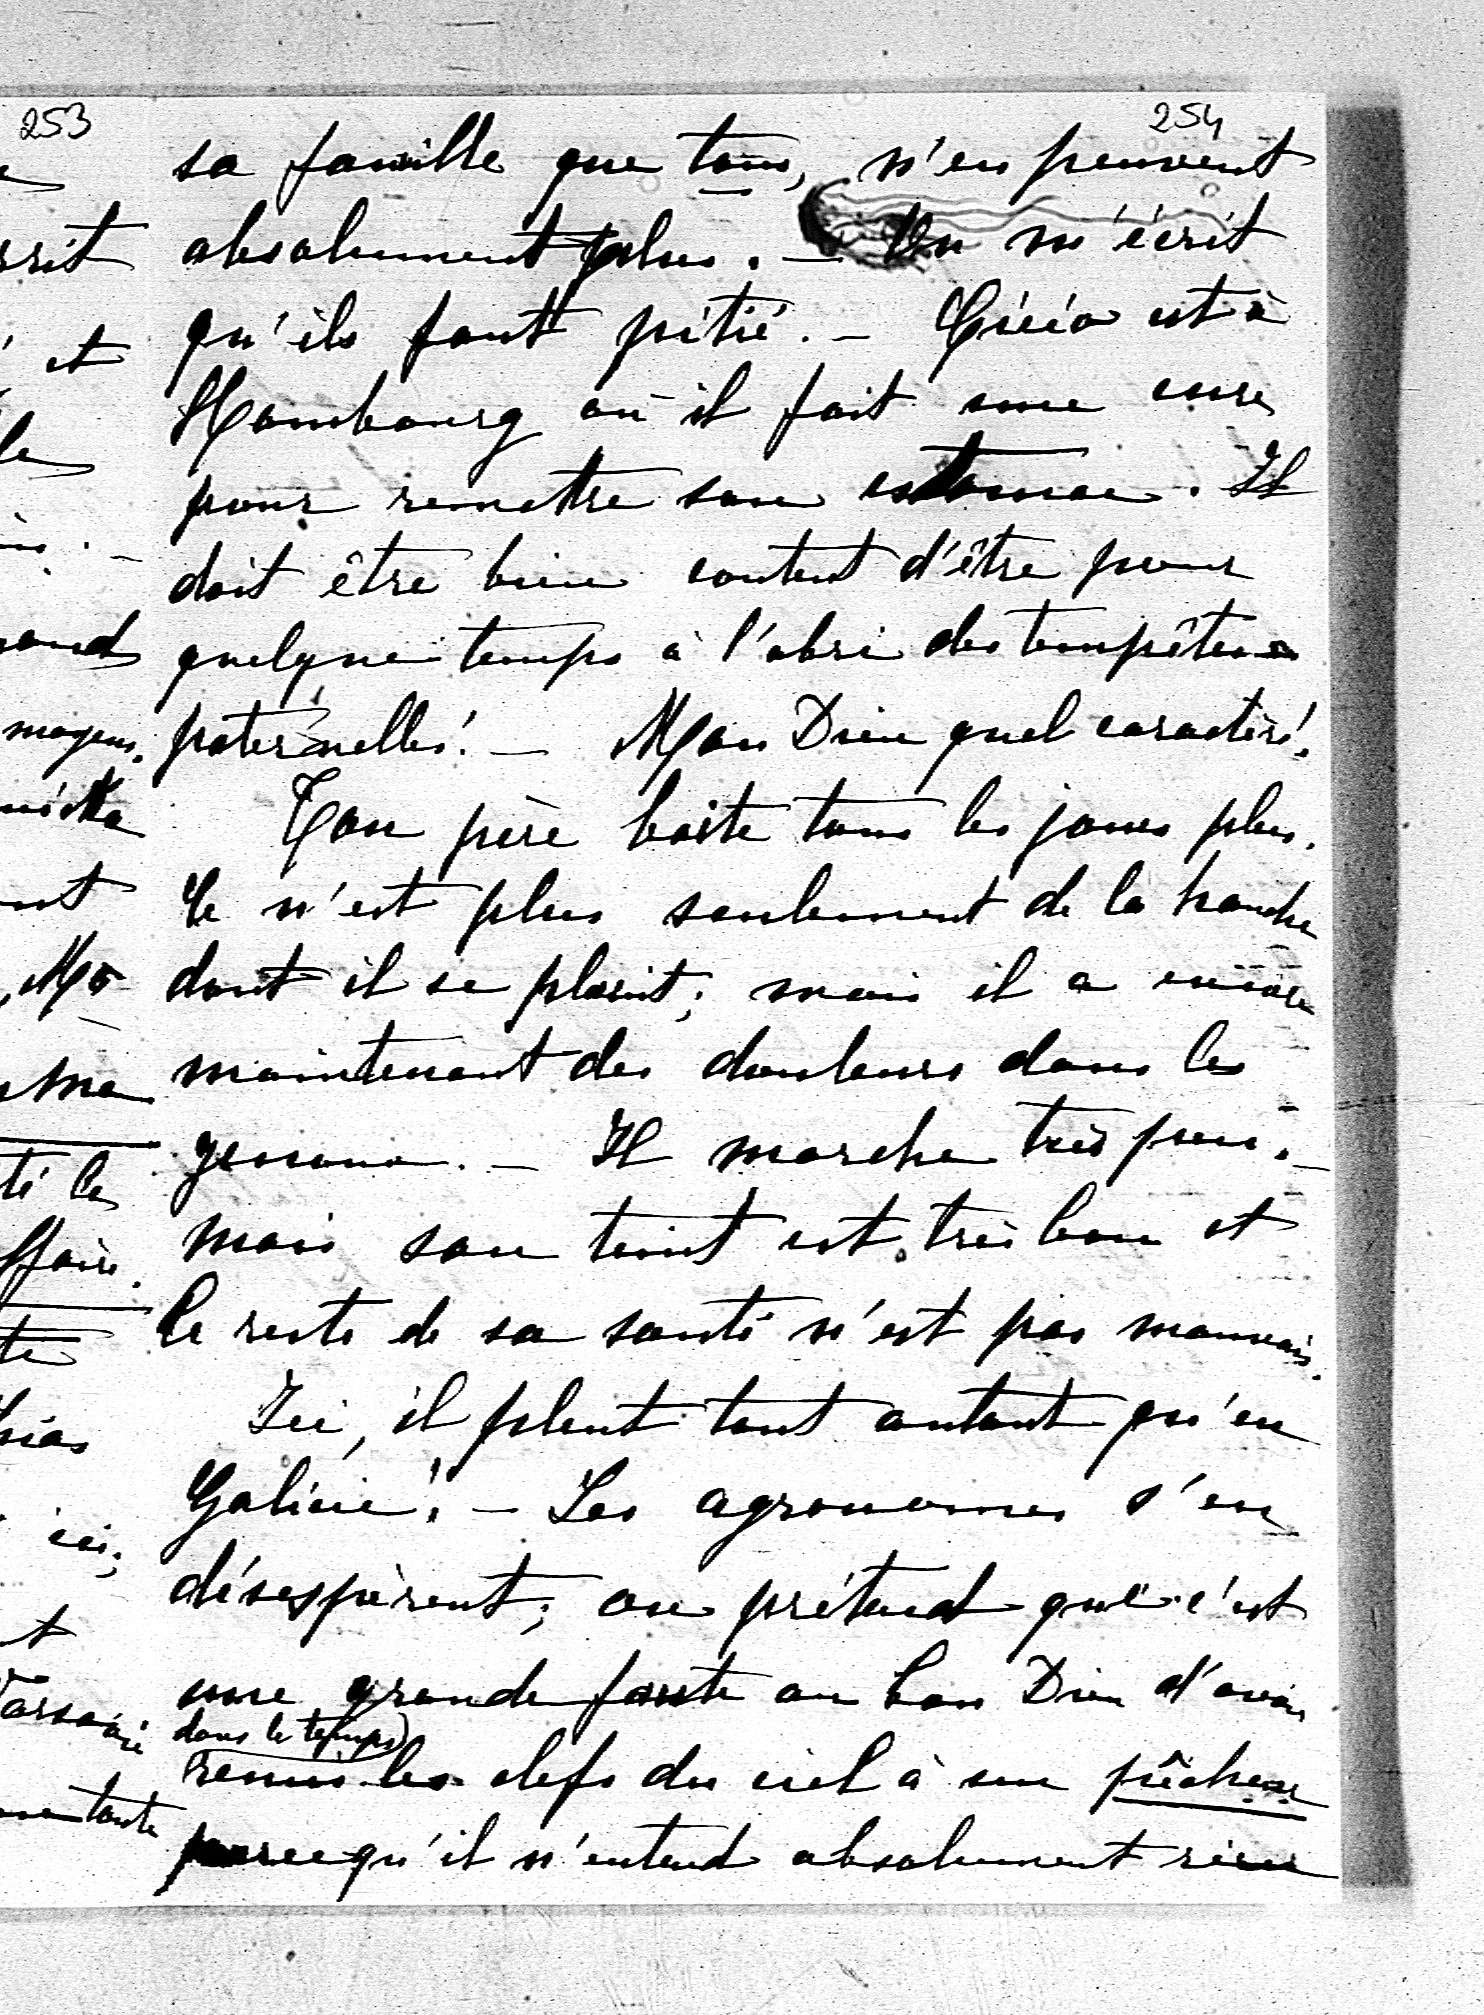 253
254
sa famille que tous, n'en peuvent
absolument plus. — On m'écrit
qu'ils font pitié. — est à
Hombourg où il fait une cure
pour remettre son estomac. Il
doit être bien content d'être pour
quelque temps à l'abri des tempêtes
paternelles! — Mon Dieu quel caractère!
Ton père boite tous les jours plus.
Ce n'est plus seulement de la hanche
dont il se plaint; mais il a encore
maintenant des douleurs dans les
genoux. — Il marche très peu. —
mais son teint est très bon et
le reste de sa santé n'est pas mauvais.
Ici, il pleut tout autant qu'en
Galicie! — Les agronomes s'en
désespèrent; on prétend que c'est
une grande faute au bon Dieu d'avoir
dans le temps
remis les clefs du ciel à un pêcheur
parcequ'il n'entend absolument rien